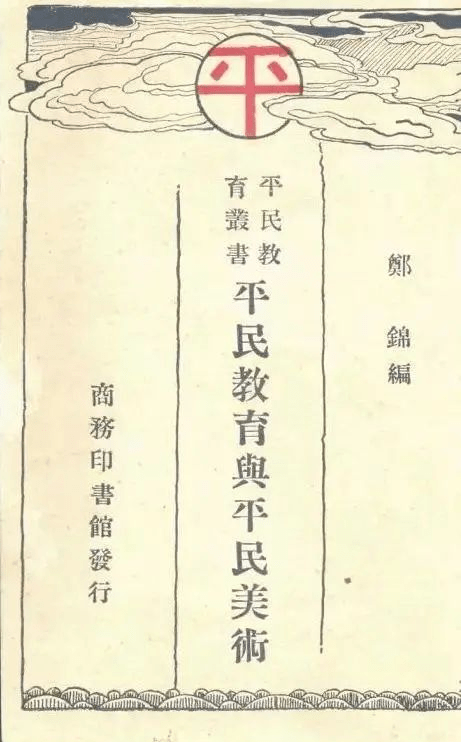 平
鄭錦編
平民教
育叢書
平民教育與平民美術
商務印書館發行